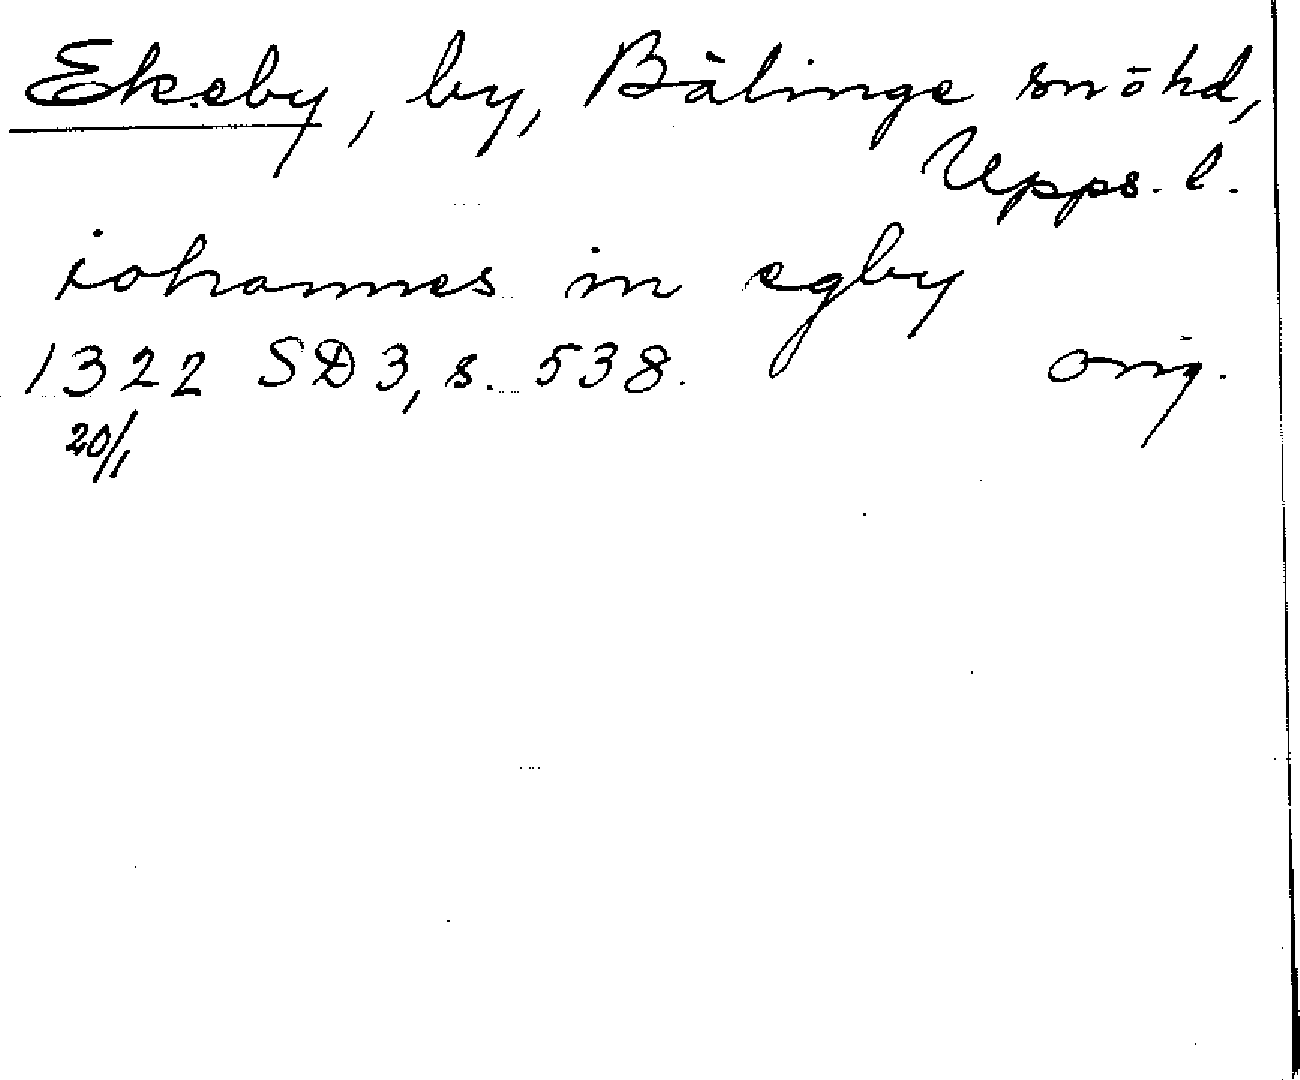 Ekeby, by, Bälinge sn o hd,
Upps. l.
iohannes in egby
1322 SD 3, s. 538. orig.
20/1